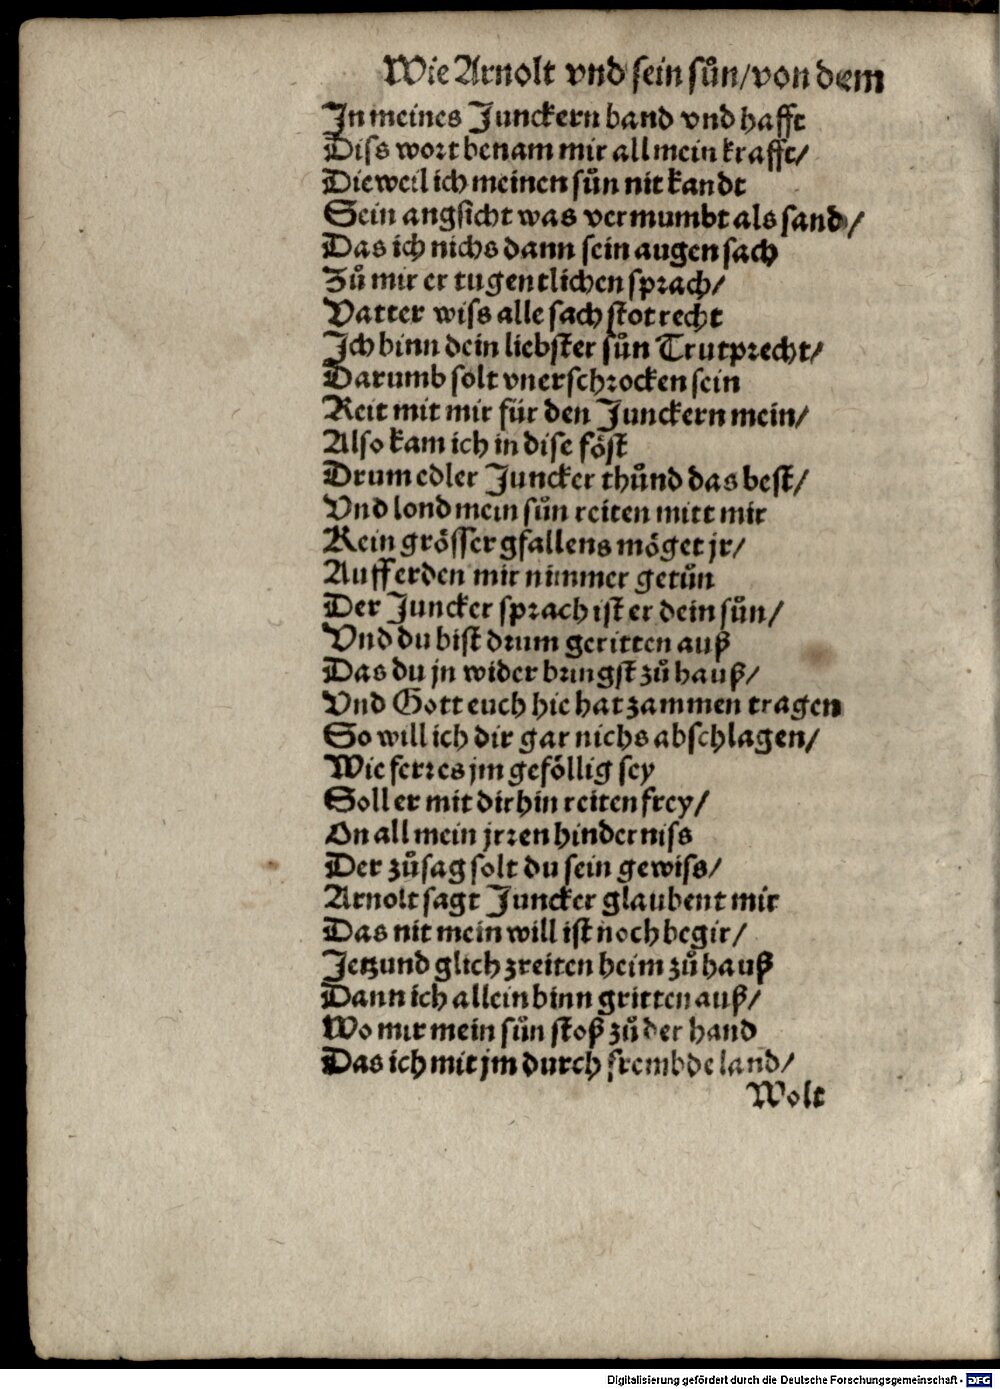 Wie Arnolt vnd sein sůn/von dem
In meines Junckern band vnd hafft
Diss wort benam mir all mein krafft/
Dieweil ich meinen sůn nit kandt
Sein angsicht was vermumbt als sand/
Das ich nichs dann sein augen sach
Zů mir er tugentlichen sprach/
Vatter wiss alle sach stot recht
Ich binn dein liebster sůn Trutprecht/
Darumb solt vnerschrocken sein
Reit mit mir für den Junckern mein/
Also kam ich in dise föst
Drum edler Juncker thůnd das best/
Vnd lond mein sůn reiten mitt mir
Kein grösser gfallens möget jr/
Auff erden mir nimmer getůn
Der Juncker sprach ist er dein sůn/
Vnd du bist drum geritten auß
Das du jn wider bringst zů hauß/
Vnd Gott euch hie hat zammen tragen
So will ich dir gar nichs abschlagen/
Wie ferr es jm geföllig sey
Soll er mit dir hin reiten frey/
On all mein jrren hinderniss
Der zůsag solt du sein gewiss/
Arnolt sagt Juncker glaubent mir
Das nit mein will ist noch begir/
Jetzund glich zreiten heim zů hauß
Dann ich allein binn gritten auß/
Wo mir mein sůn stoß zů der hand
Das ich mit jm durch frembde land/
Wolt
Digitalisierung gefördert durch die Deutsche Forschungsgemeinschaft - DFG